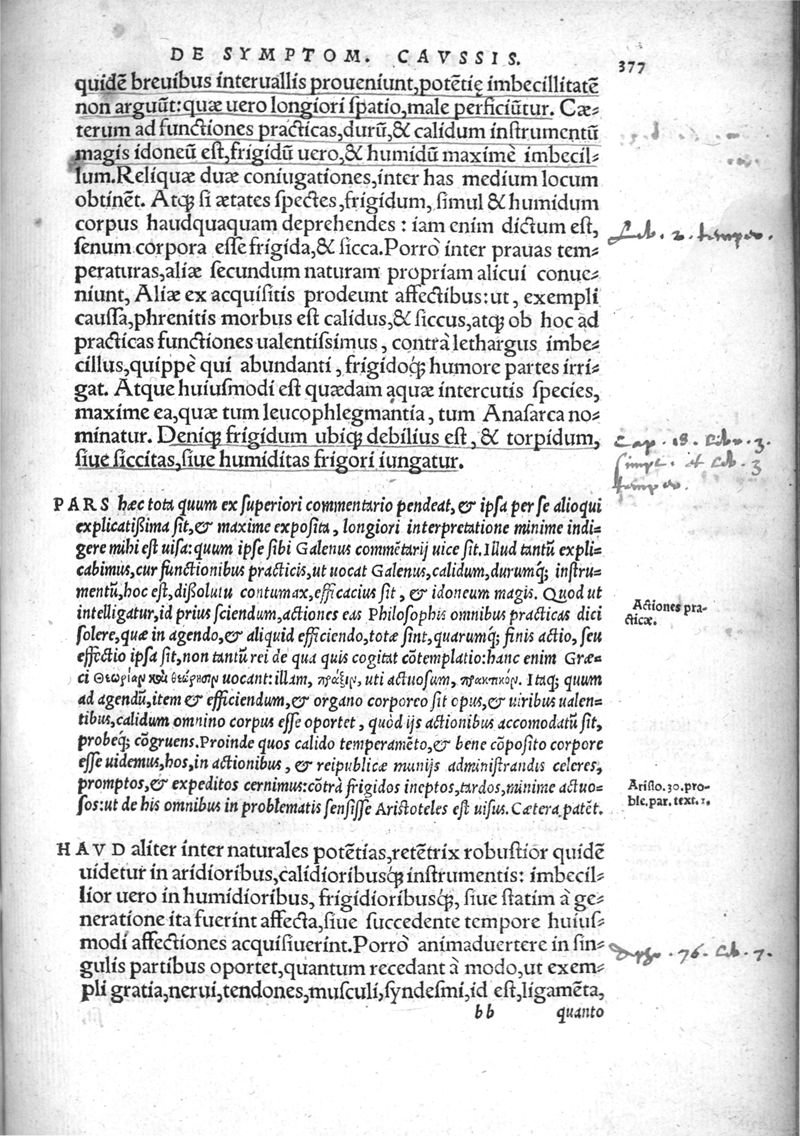 DE SYMPTOM. CAVSSIS.
377
quidē breuibus interuallis proueniunt, potētię imbecillitatē
non arguūt: quæ uero longiori ſpatio, male perficiūtur. Cæ-
terum ad functiones practicas, durū, & calidum inſtrumentū
magis idoneū eſt, frigidū uero, & humidū maximè imbecil-
lum. Reliquæ duæ coniugationes, inter has medium locum
obtinēt. Atq; ſi ætates ſpectes, frigidum, ſimul & humidum
corpus haudquaquam deprehendes: iam enim dictum eſt,
Lib. 2. temper.
ſenum corpora eſſe frigida, & ſicca. Porrò inter prauas tem-
peraturas, aliæ ſecundum naturam propriam alicui conue-
niunt, Aliæ ex acquiſitis prodeunt affectibus: ut, exempli
cauſſa, phrenitis morbus eſt calidus, & ſiccus, atq; ob hoc ad
practicas functiones ualentiſſimus, contrà lethargus imbe-
cillus, quippè qui abundanti, frigidoq́; humore partes irri-
gat. Atque huiuſmodi eſt quædam aquæ intercutis ſpecies,
maxime ea, quæ tum leucophlegmantia, tum Anaſarca no-
minatur. Deniq; frigidum ubiq; debilius eſt, & torpidum,
Cap. 18. Libr. 3.
ſiue ſiccitas, ſiue humiditas frigori iungatur.
simpl. et Lib. 3
temper.
PARS hæc tota quum ex ſuperiori commentario pendeat, & ipſa per ſe alioqui
explicatißima ſit, & maxime expoſita, longiori interpretatione minime indi-
gere mihi eſt uiſa: quum ipſe ſibi Galenus commētarij uice ſit. Illud tantū expli-
cabimus, cur functionibus practicis, ut uocat Galenus, calidum, durumq́; inſtru-
mentū, hoc eſt, dißolutu contumax, efficacius ſit, & idoneum magis. Quod ut
intelligatur, id prius ſciendum, actiones eas Philoſophis omnibus practicas dici
Actiones pra-
cticæ.
ſolere, quæ in agendo, & aliquid efficiendo, totæ ſint, quarumq; finis actio, ſeu
effectio ipſa ſit, non tantū rei de qua quis cogitat cōtemplatio: hanc enim Græ-
ci θεωρίαν καὶ θεώρησιν uocant: illam, πρᾶξιν, uti actuoſum, πρακτικόν. Itaq; quum
ad agendū, item & efficiendum, & organo corporeo ſit opus, & uiribus ualen-
tibus, calidum omnino corpus eſſe oportet, quòd ijs actionibus accomodatū ſit,
probeq́; cōgruens. Proinde quos calido temperamēto, & bene cōpoſito corpore
eſſe uidemus, hos, in actionibus, & reipublicæ munijs adminiſtrandis celeres,
promptos, & expeditos cernimus: cōtrà frigidos ineptos, tardos, minime actuo-
Ariſto. 30. pro-
ble. par. text. 1.
ſos: ut de his omnibus in problematis ſenſiſſe Ariſtoteles eſt uiſus. Cætera patēt.
HAVD aliter inter naturales potētias, retētrix robuſtior quidē
uidetur in aridioribus, calidioribusq́; inſtrumentis: imbecil-
lior uero in humidioribus, frigidioribusq́;, ſiue ſtatim à ge-
neratione ita fuerint affecta, ſiue ſuccedente tempore huiuſ-
modi affectiones acquiſiuerint. Porrò animaduertere in ſin-
Apho. 76. Lib. 7.
gulis partibus oportet, quantum recedant à modo, ut exem-
pli gratia, nerui, tendones, muſculi, ſyndeſmi, id eſt, ligamēta,
bb
quanto